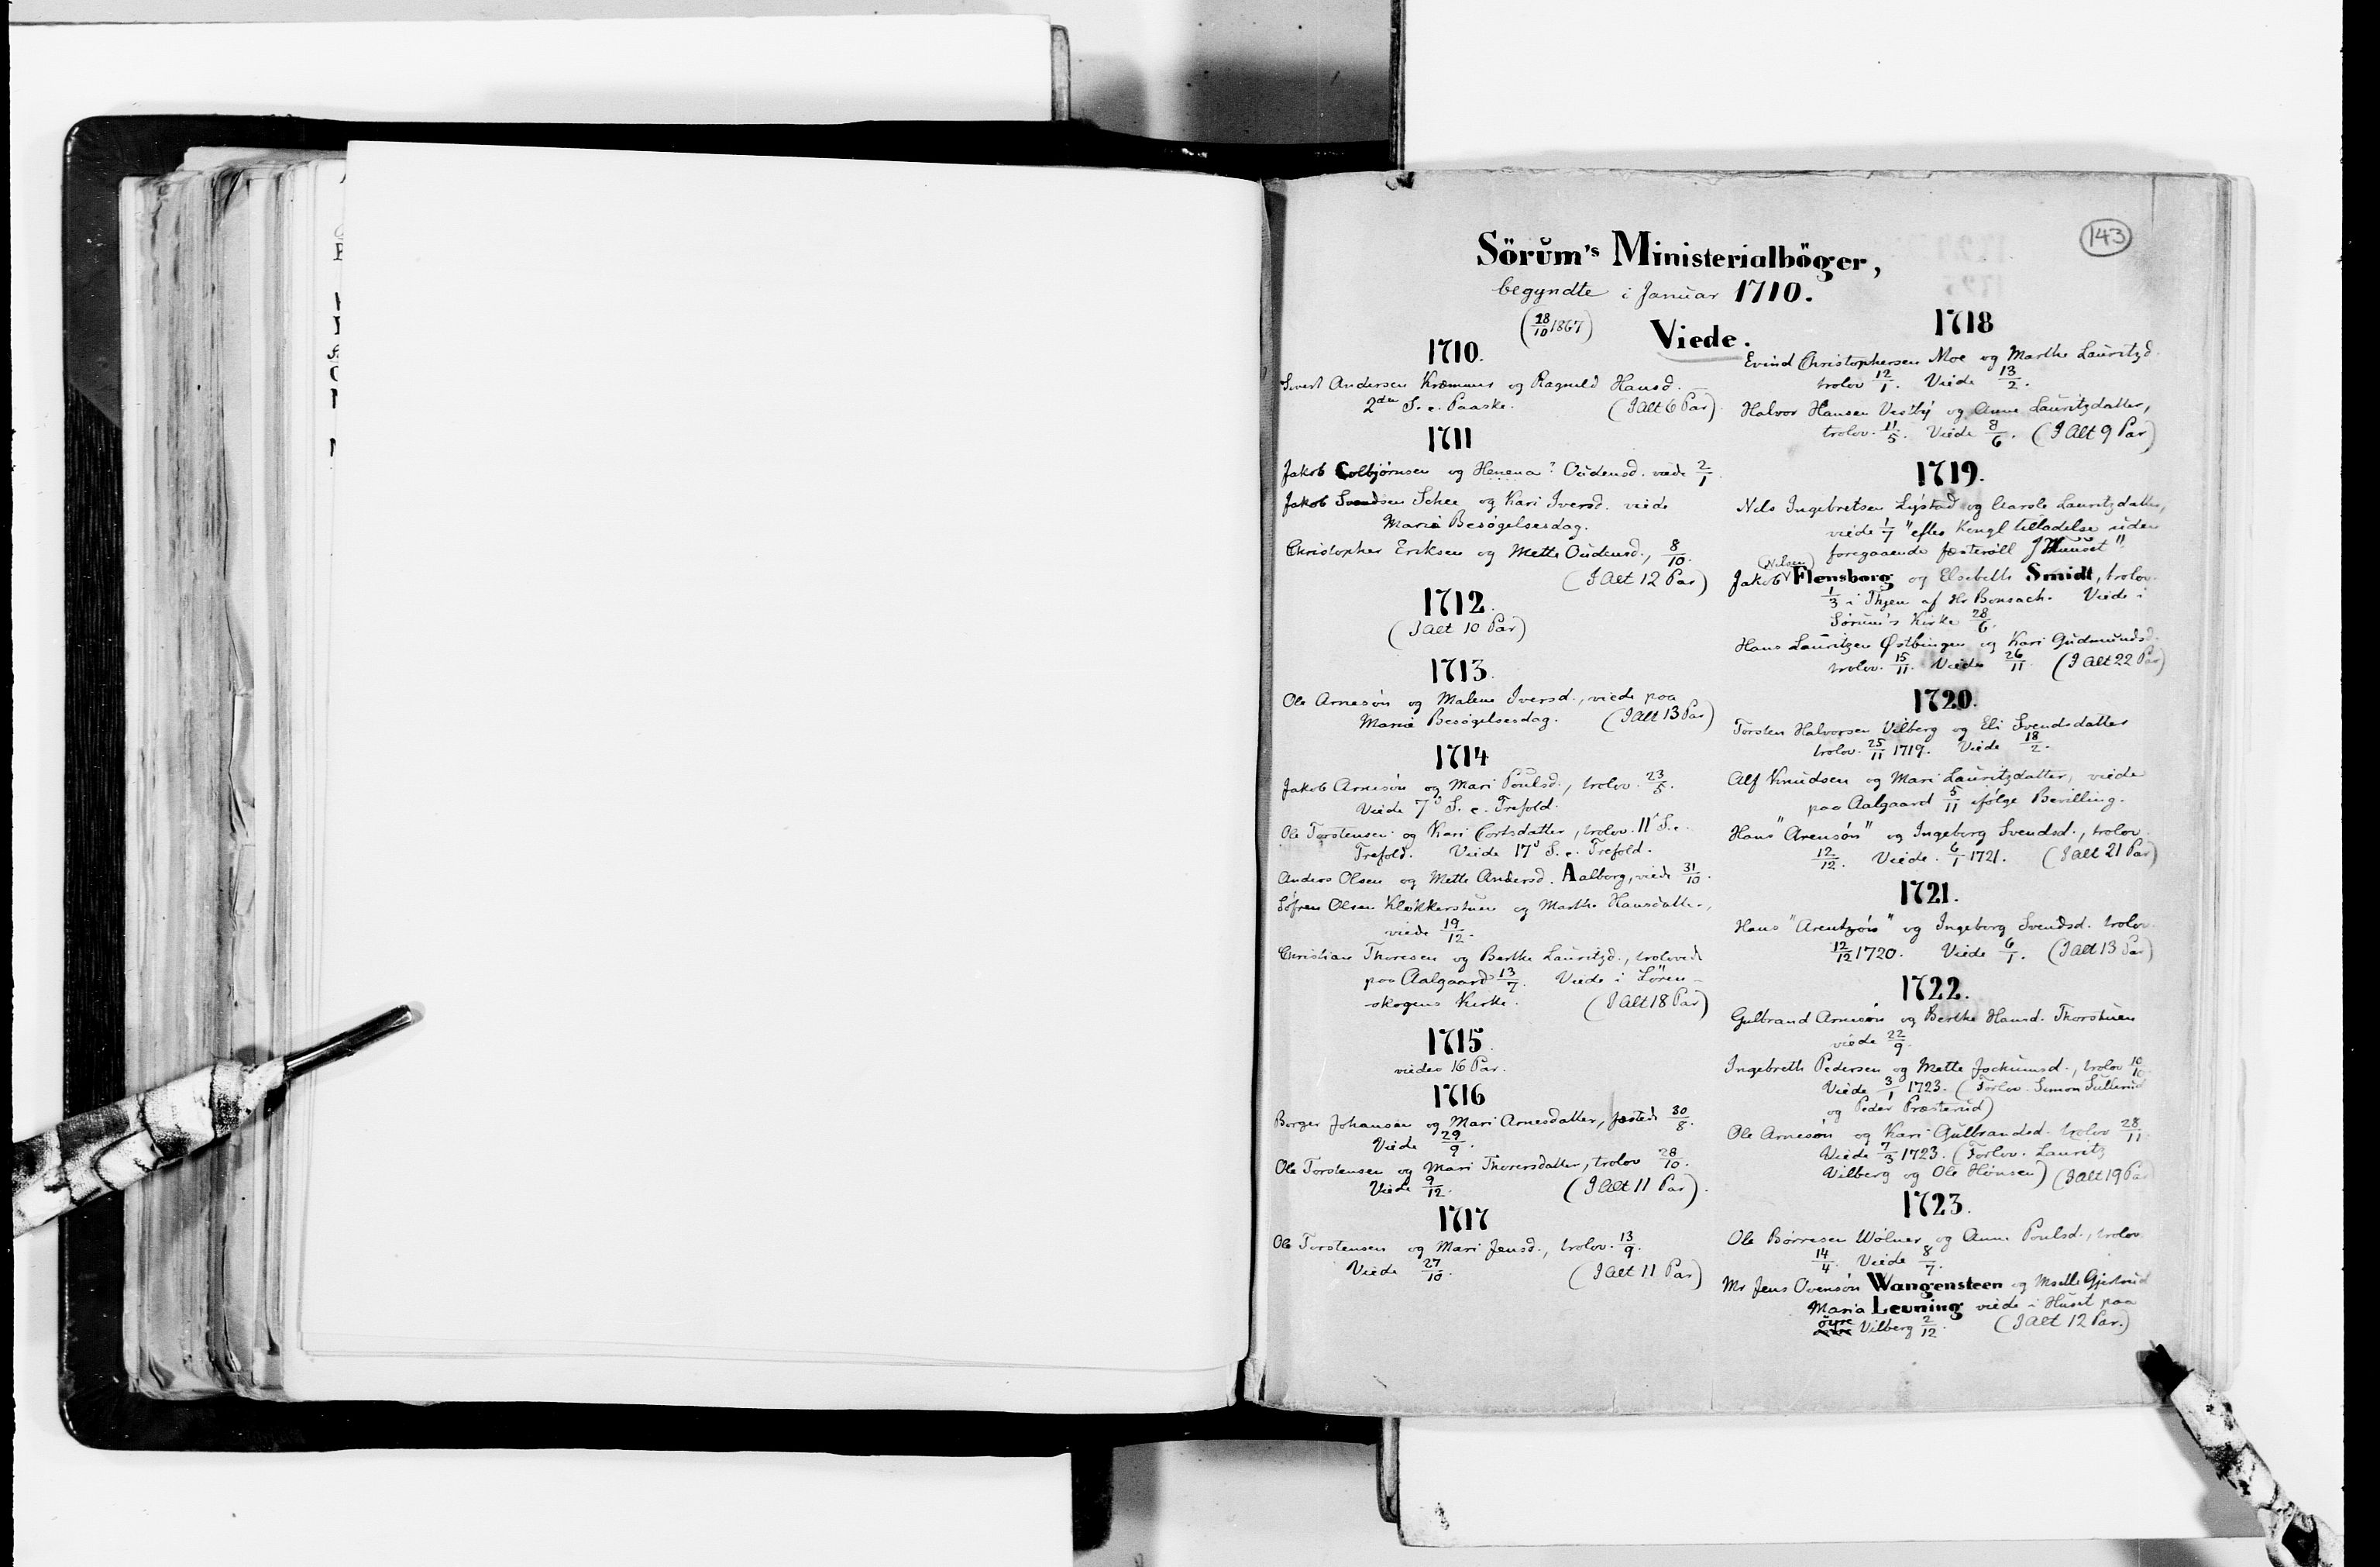 143
Sörŭm's Ministerialböger,
begyndte i Januar 1710.
(18/10 1867)
Viede.
1710.
Sivert Andersen Kræmmer og Ragnild Hansd.
2den S. e. Paaske. (I Alt 6 Par).
1711
Jakob Colbjørnsen og Henena? Oudensd. viede 2/1
Jakob Svendsen Schee og Kari Iversd. viede
Mariæ Besøgelsesdag.
Christopher Eriksen og Mette Oudensd., 8/10.
(I Alt 12 Par)
1712.
(I Alt 10 Par)
1713.
Ole Arnesøn og Malene Iversd., viede paa
Mariæ Besøgelsesdag. (I Alt 13 Par)
1714
Jakob Arnesøn og Mari Poulsd., trolov. 23/5.
Viede 7d S. e. Trefold.
Ole Torstensen og Kari Cortsdatter, trolov. 11t S. e.
Trefold. Viede 17d S. e. Trefold.
Anders Olsen og Mette Andersd. Aalborg, viede 31/10.
Søfren Olsen Klokkerstuen og Marthe Hansdatter,
viede 19/12.
Christian Thoresen og Berthe Lauritzd., trolovede
paa Aalgaard 13/7. Viede i Lören-
skogens Kirke. (I Alt 18 Par)
1715.
viedes 16 Par.
1716
Borger Johansen og Mari Arnesdatter, fæstede 30/8.
Viede 29/9.
Ole Torstensen og Mari Thorersdatter, trolov 28/10.
Viede 9/12. (I Alt 11 Par).
1717
Ole Torstensen og Mari Jensd., trolov. 13/9.
Viede 27/10. (I Alt 11 Par)
1718
Evind Christophersen Moe og Marthe Lauritzd.
trolov 12/1. Viede 13/2.
Halvor Hansen Vestby og Anne Lauritzdatter,
trolov. 11/5. Viede 8/6. (I Alt 9 Par)
1719.
Nils Ingebretsen Lystad og Aarole Lauritzdatter,
viede 1/7 "efter Kongl tilladelse uden
foregaaende fæsterøll J Huuset".
(Nilsen)
Jakob Flensborg og Elsebeth Smidt, trolov.
1/3 i Thjen af Hr Bonsach. Viede i
Sörum's Kirke 28/6.
Hans Lauritzen Østbingen og Kari Gudmundsd.
trolov. 15/11. Viede 26/11. (I Alt 22 Par)
1720.
Torsten Halvorsen Vilberg og Eli Svendsdatter
trolov. 25/11 1719. Viede 18/2.
Alf Knudsen og Mari Lauritzdatter, viede
paa Aalgaard 5/11 ifölge Bevilling.
Hans "Arensön" og Ingeborg Svendsd., trolov.
12/12. Viede. 6/1 1721. (I Alt 21 Par)
1721.
Hans "Arentzön" og Ingeborg Svendsd. trolov.
12/12 1720. Viede 6/1. (I Alt 13 Par)
1722.
Gulbrand Arnesön og Berthe Hansd. Thorstuen
viede 22/9.
Ingebreth Pedersen og Mette Jockumsd., trolov 10/10.
Viede 3/1 1723. (Forlov. Simon Sullerud
og Peder Præsterud)
Ole Arnesön og Kari Gulbrandsd. trolov 28/11.
Viede 7/3 1723. (Forlov. Lauritz
Vilberg og Ole Hönsen) (I Alt 19 Par
1723.
Ole Börresen Wölner og Anne Poulsd., trolov.
14/4. Viede 8/7.
Mr Jens Ovensön Wangensteen og Mselle Gjertrud
Maria Leuning viede i Huset paa
öyre Vilberg 2/12. (I Alt 12 Par.)